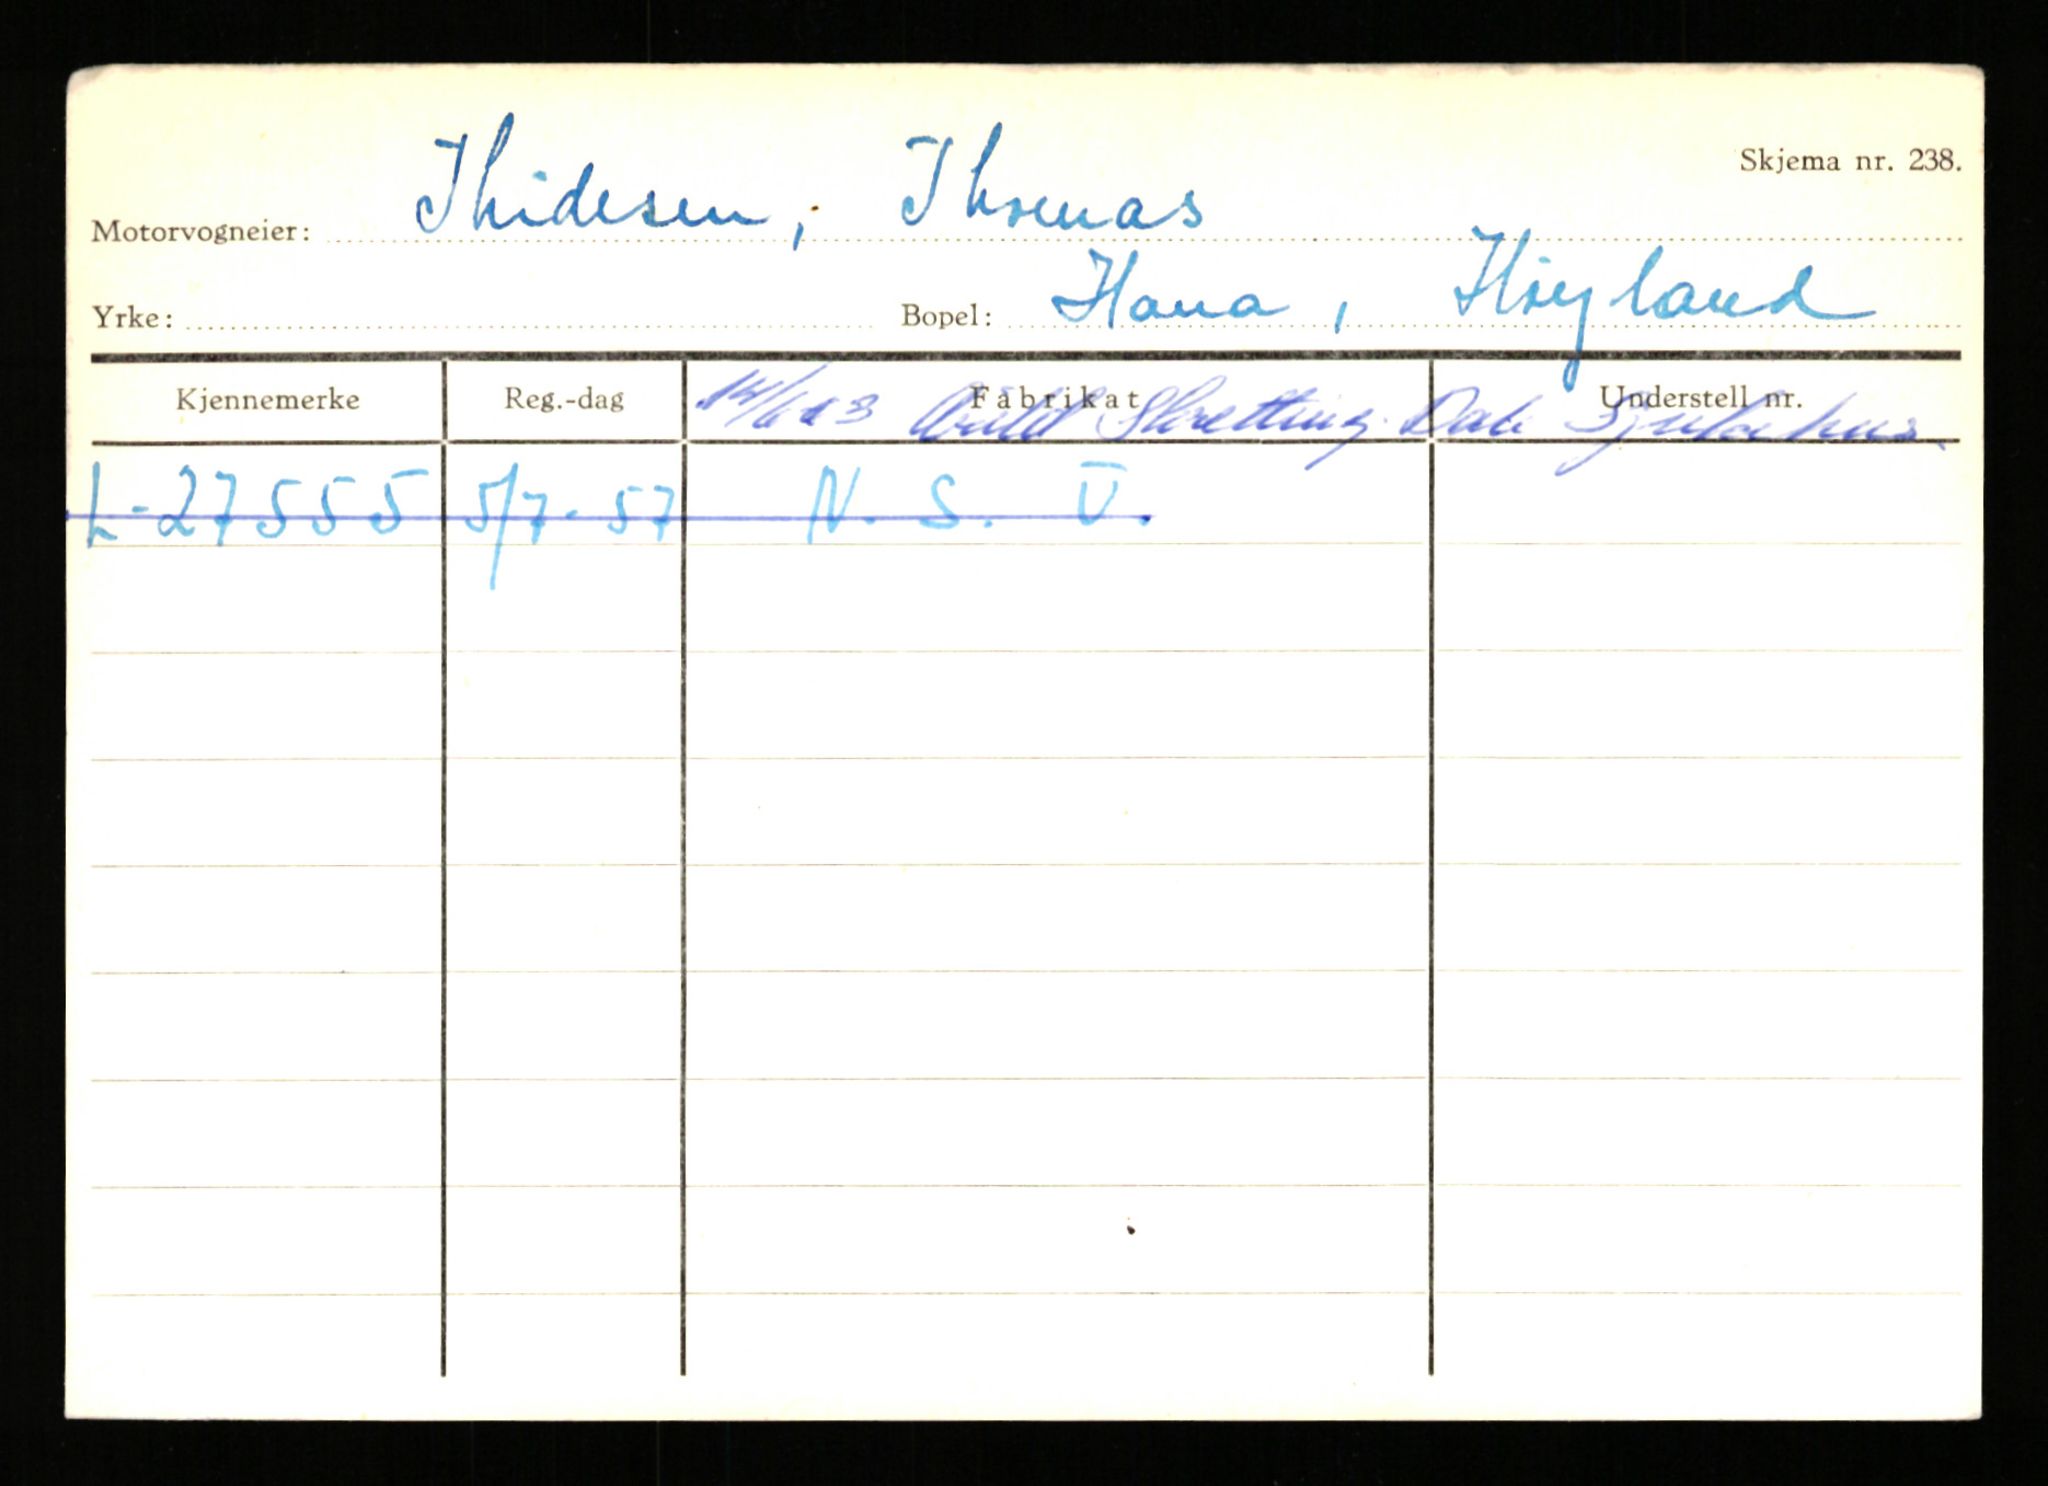 Skjema nr. 238.
Motorvogneier: Thidesen, Thomas
Yrke: Bopel: Hana, Høyland
Kjennemerke Reg.-dag Fabrikat Understell nr.
14/6 63 Arild Skretting. Dale Sjukehus.
L-27555 5/7-57 N.S.U.